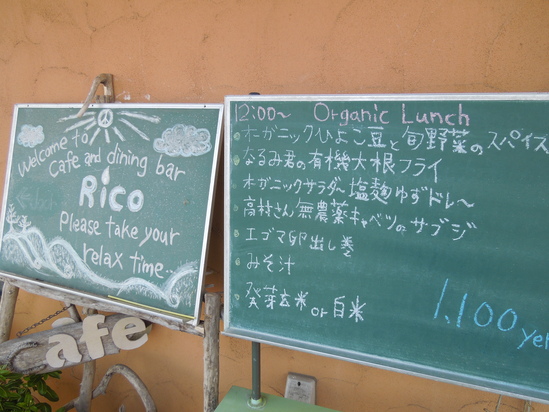 Welcome to
Cafe and dining bar
Rico
Please take your
relax time...
afe
12:00~ Organic Lunch
オーガニックひよこ豆と旬野菜のスパイス
なるみ君の有機大根フライ
オーガニックサラダ〜塩麹ゆずドレ〜
高村さん無農薬キャベツのサブジ
エゴマ卵出し巻
みそ汁
発芽玄米 or 白米
1,100yen